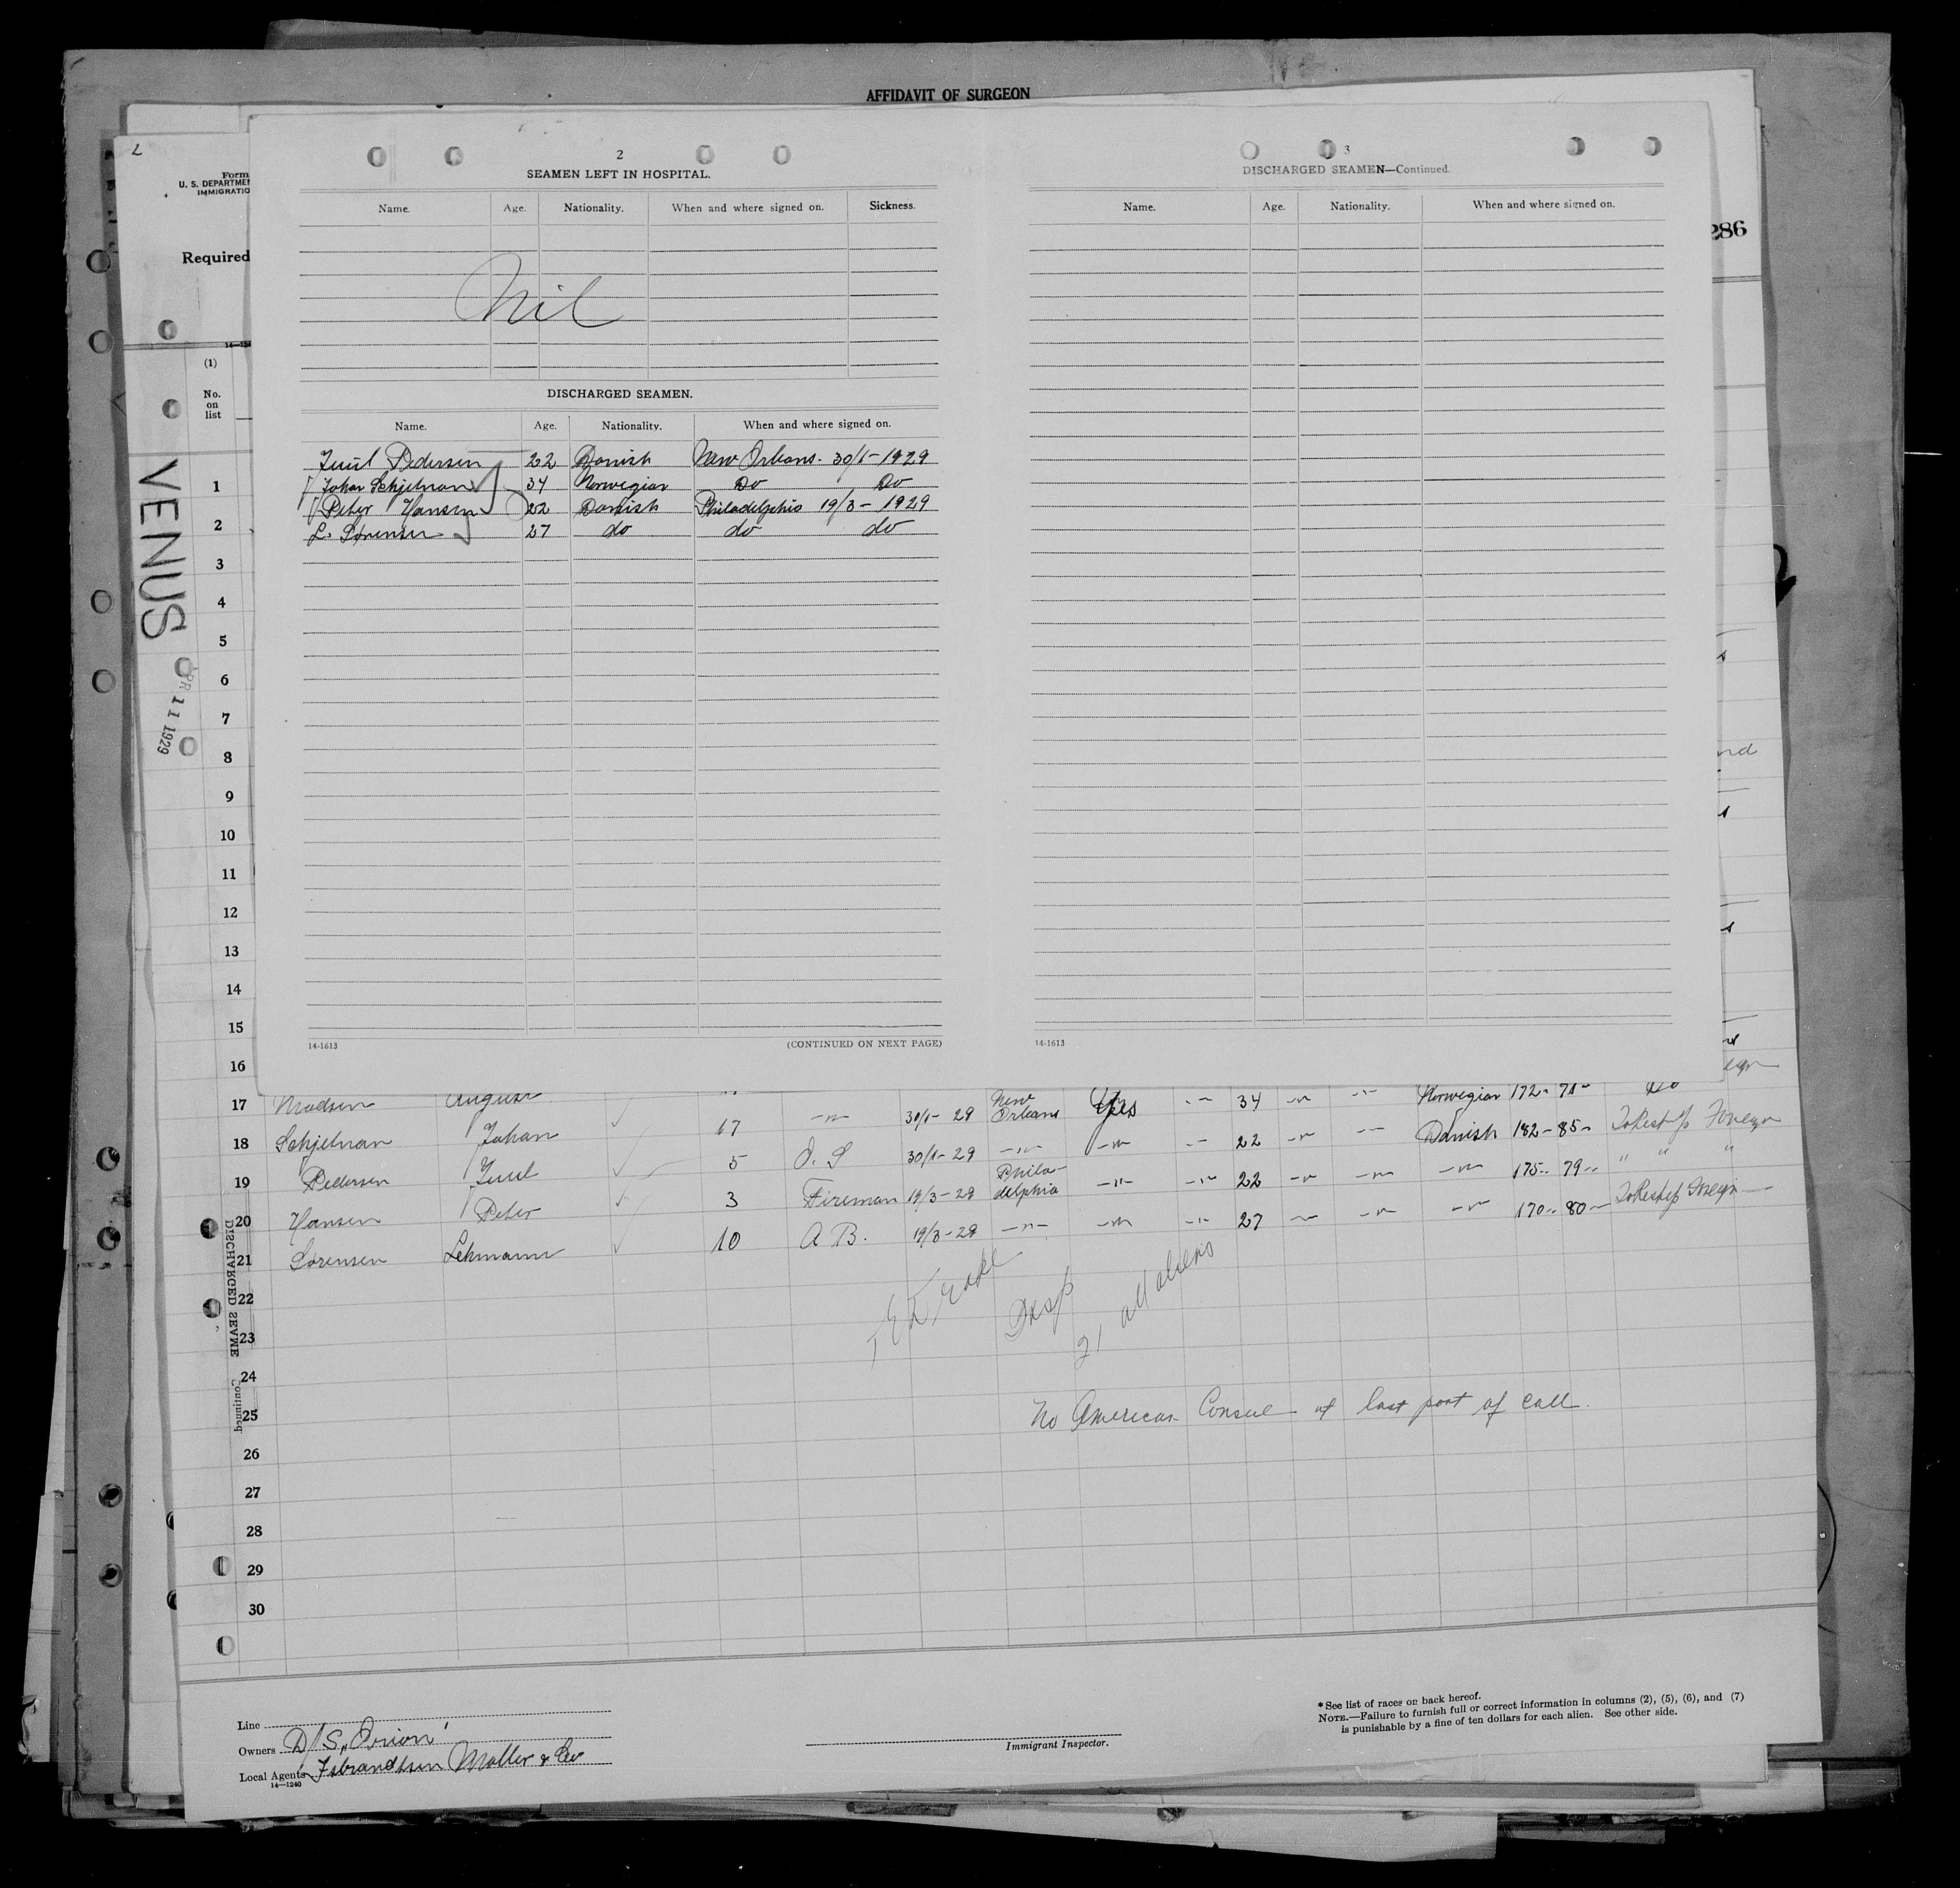 AFFIDAVIT OF SURGEON
2
Form
U. S. DEPARTMEN
IMMIGRATIO
Required
286
(1)
No.
on
list
VENUS
APR 11 1929
2
SEAMEN LEFT IN HOSPITAL.
Name. Age. Nationality. When and where signed on. Sickness.
Nil
DISCHARGED SEAMEN.
Name. Age. Nationality. When and where signed on.
Juul Pedersen 22 Danish New Orleans. 30/1-1929
Johan Schjelman 34 Norwegian Do Do
Peter Hansen 22 Danish Philadelphia 19/3-1929
L. Sørensen 27 do do do
14-1613 (CONTINUED ON NEXT PAGE)
3
DISCHARGED SEAMEN—Continued.
Name. Age. Nationality. When and where signed on.
14-1613
1
2
3
4
5
6
7
8
9
10
11
12
13
14
15
16
17 Madsen August
18 Schjelman Johan 17 -"- 30/1-29 New Orleans Yes -"- 34 -"- -"- Norwegian 172- 71- Do
19 Pedersen Juul 5 O. S 30/1-29 -"- -"- -"- 22 -"- -"- Danish 182-85- To Reship Foreign
20 Hansen Peter 3 Fireman 19/3-29 Phila-delphia -"- -"- 22 -"- -"- -"- 175.. 79.. " " "
21 Sørensen Lehmann 10 A B. 19/3-29 -"- -"- -"- 27 -"- -"- -"- 170.. 80 To Reship Foreign
22
23
24
25
26
27
28
29
30
DISCHARGED SEAME Continued
21 all aliens
No American Consul at last port of call.
Line
Owners D/S "Orion"
Local Agents Isbrandtsen Moller & Co
14—1240
Immigrant Inspector.
* See list of races on back hereof.
NOTE.—Failure to furnish full or correct information in columns (2), (5), (6), and (7)
is punishable by a fine of ten dollars for each alien. See other side.